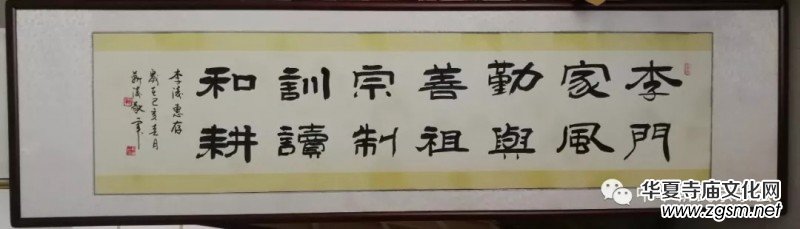 李門
家風
勤與
善祖
宗制
訓讀
和耕
李 惠存
歲在己亥春月
敬
华夏寺庙文化网
www.zgsm.net